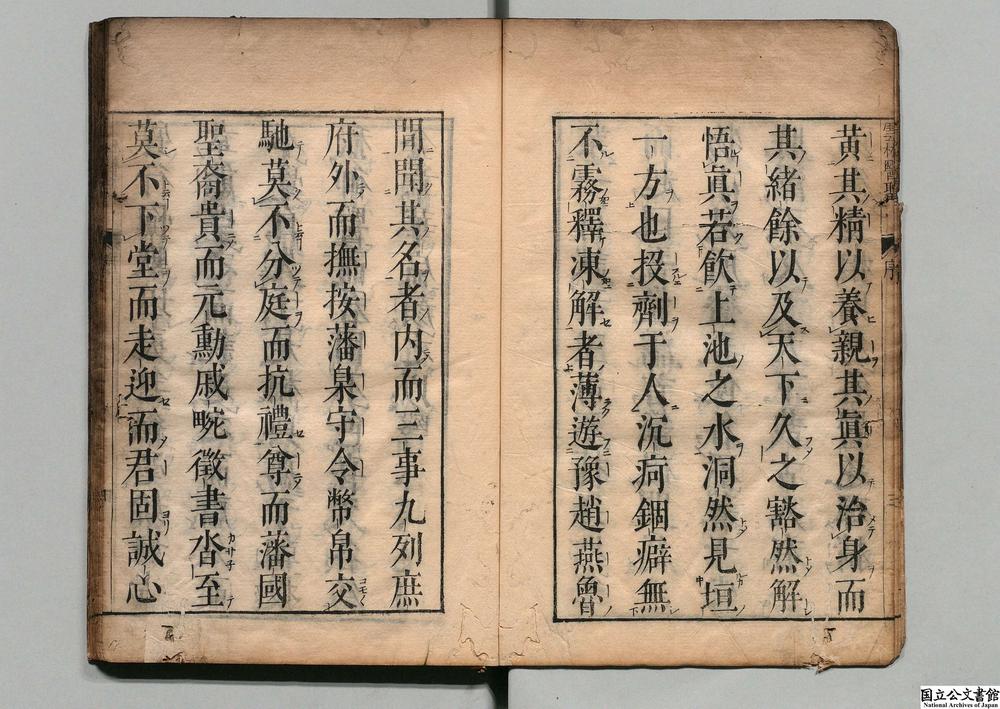 黄其精以養親其眞以治身而
其緒餘以及天下久之豁然解
悟眞若飮上池之水洞然見垣
一方也投劑于人沉疴錮癖無
不霧釋凍解者薄遊豫趙燕魯
序
三
間聞其名者内而三事九列庶
府外而撫按藩臬守令幣帛交
馳莫不分庭而抗禮尊而藩國
聖裔貴而元勳戚畹徵書沓至
莫不下堂而走迎而君固誠心
国立公文書館
National Archives of Japan